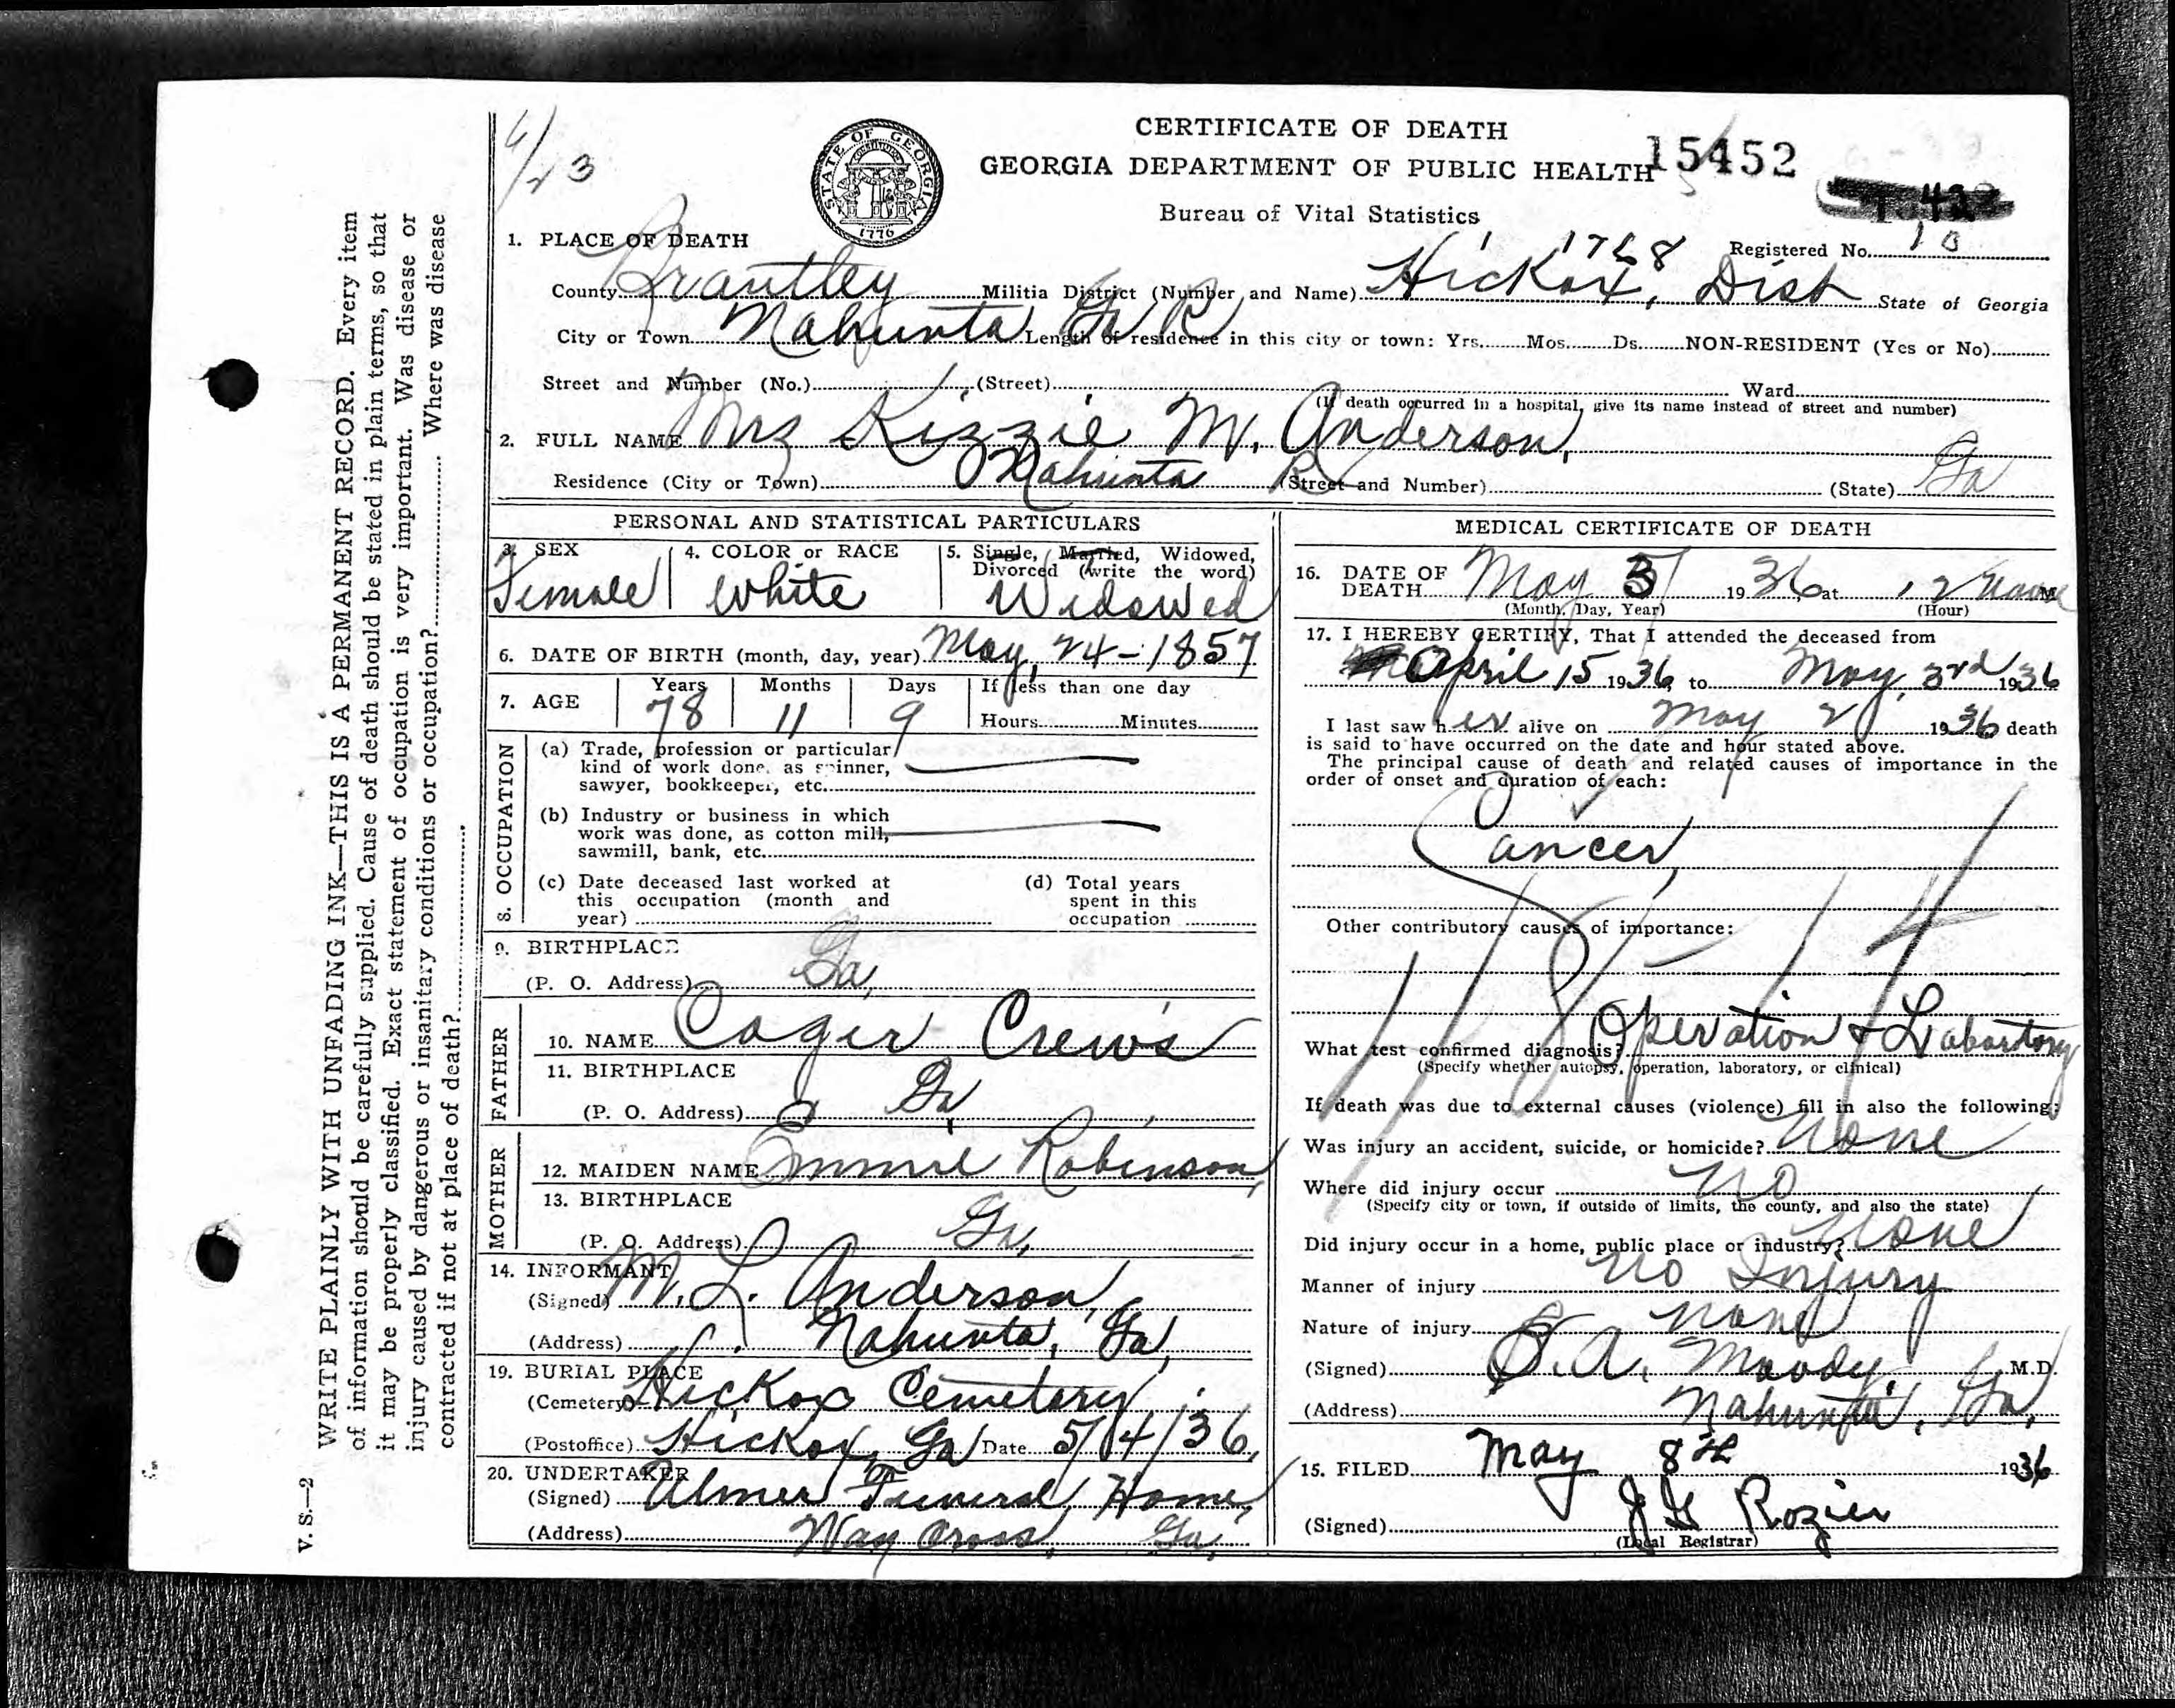 4/23
CERTIFICATE OF DEATH
GEORGIA DEPARTMENT OF PUBLIC HEALTH 15452
Bureau of Vital Statistics
STATE OF GEORGIA
CONSTITUTION
1776
1. PLACE OF DEATH
1768 Registered No. 10
County Brantley Militia District (Number and Name) Hickox, Dist State of Georgia
City or Town Nahunta Ga R Length of residence in this city or town: Yrs. Mos. Ds. NON-RESIDENT (Yes or No)
Street and Number (No.) (Street) Ward
(If death occurred in a hospital, give its name instead of street and number)
2. FULL NAME Mrs Kizzie M. Anderson,
Residence (City or Town) Nahunta R (Street and Number) (State) Ga
PERSONAL AND STATISTICAL PARTICULARS
3. SEX Female
4. COLOR or RACE White
5. Single, Married, Widowed, Divorced (write the word) Widowed
6. DATE OF BIRTH (month, day, year) May, 24-1857
7. AGE Years 78 Months 11 Days 9 If less than one day Hours Minutes
8. OCCUPATION
(a) Trade, profession or particular
kind of work done, as spinner,
sawyer, bookkeeper, etc.
(b) Industry or business in which
work was done, as cotton mill,
sawmill, bank, etc.
(c) Date deceased last worked at
this occupation (month and
year)
(d) Total years
spent in this
occupation
9. BIRTHPLACE
(P. O. Address) Ga,
FATHER
10. NAME Cager Crews
11. BIRTHPLACE
(P. O. Address) Ga,
MOTHER
12. MAIDEN NAME Emmie Robinson,
13. BIRTHPLACE
(P. O. Address) Ga,
14. INFORMANT
(Signed) M. L. Anderson,
(Address) Nahunta, Ga,
19. BURIAL PLACE
(Cemetery) Hickox Cemetary
(Postoffice) Hickox, Ga Date 5/4/36,
20. UNDERTAKER
(Signed) Ulmer Funeral Home,
(Address) Way Cross, Ga,
MEDICAL CERTIFICATE OF DEATH
16. DATE OF
DEATH May 3 1936, at 12 Noon M
(Month, Day, Year) (Hour)
17. I HEREBY CERTIFY, That I attended the deceased from
April 15 1936 to May, 3rd 1936
I last saw her alive on May 2 1936 death
is said to have occurred on the date and hour stated above.
The principal cause of death and related causes of importance in the
order of onset and duration of each:
Cancer,
Other contributory causes of importance:
What test confirmed diagnosis? Operation & Labartory
(Specify whether autopsy, operation, laboratory, or clinical)
If death was due to external causes (violence) fill in also the following:
Was injury an accident, suicide, or homicide? None
Where did injury occur NO
(Specify city or town, if outside of limits, the county, and also the state)
Did injury occur in a home, public place or industry? None
Manner of injury No Injury
Nature of injury None
(Signed) A. Moody, M.D.
(Address) Nahunta, Ga,
15. FILED May 8th 1936
(Signed) J G Rozier
(Local Registrar)
WRITE PLAINLY WITH UNFADING INK—THIS IS A PERMANENT RECORD. Every item
of information should be carefully supplied. Cause of death should be stated in plain terms, so that
it may be properly classified. Exact statement of occupation is very important. Was disease or
injury caused by dangerous or insanitary conditions or occupation? Where was disease
contracted if not at place of death?
V. S.—2